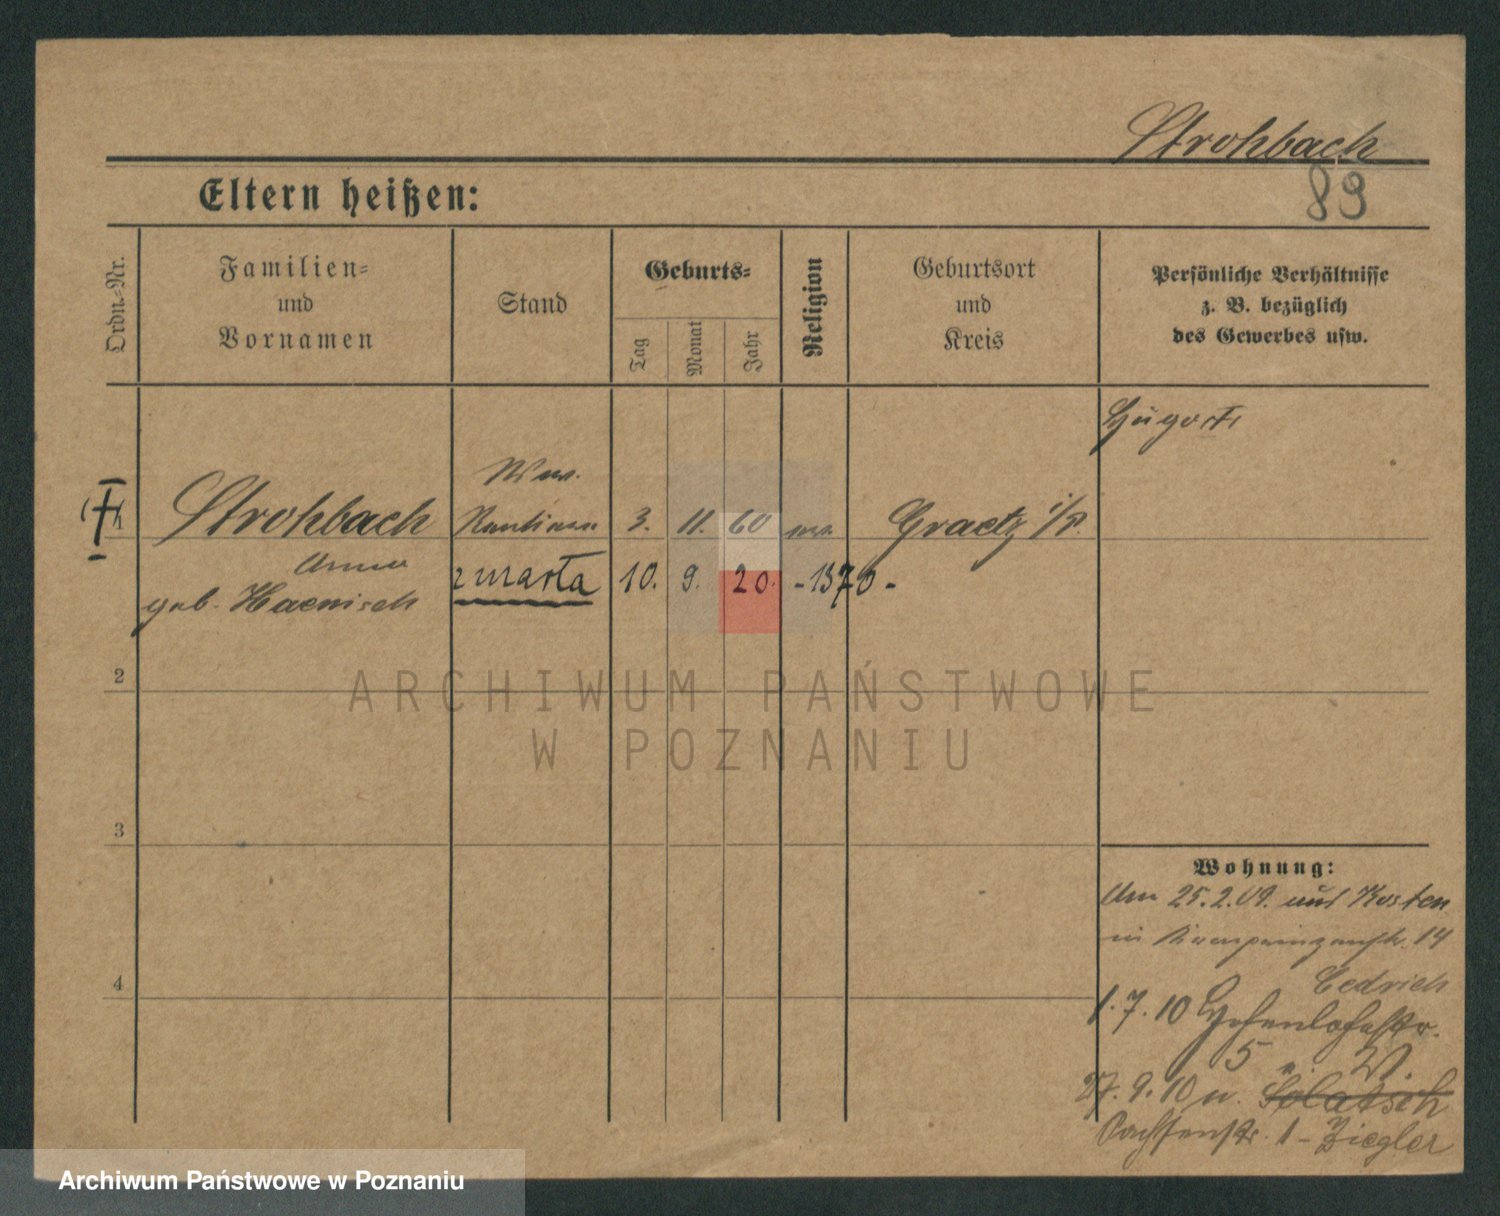 Strohbach
89
Eltern heißen:
Ordn.-Nr.
Familien-
und
Vornamen
Stand
Geburts-
Tag
Monat
Jahr
Religion
Geburtsort
und
Kreis
Persönliche Verhältnisse
z. B. bezüglich
des Gewerbes usw.
Ww.
Strohbach
3. 11. 60
Graetz i/P.
Anna
geb. Haenisch
zmarła 10. 9. 20. - 1370 -
2
3
4
Wohnung:
Am 25.2.09. aus Kosten
in Kronprinzenstr. 14
Cedrich
1.7.10 Hohenlohestr.
5 W.
27.9.10 n.
Sachsenstr. 1 - Ziegler
ARCHIWUM PAŃSTWOWE
W POZNANIU
Archiwum Państwowe w Poznaniu